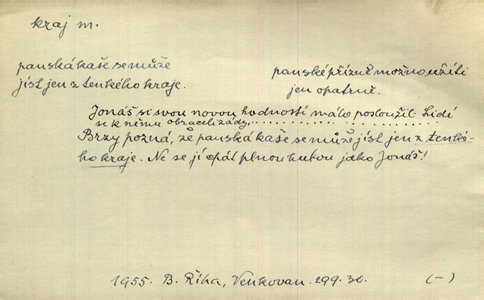 kraj m.
panská kaše se může
jíst jen z tenkého kraje.
panské přízně možno užíti
jen opatrně.
Jonáš si svou novou hodností málo posloužil. Lidé
se k němu obraceli zády............
Brzy pozná, že panská kaše se může jíst jen z tenké-
ho kraje. Ne se jí cpát plnou hubou jako Jonáš!
1955. B. Říha, Venkovan. 299.30. (-)